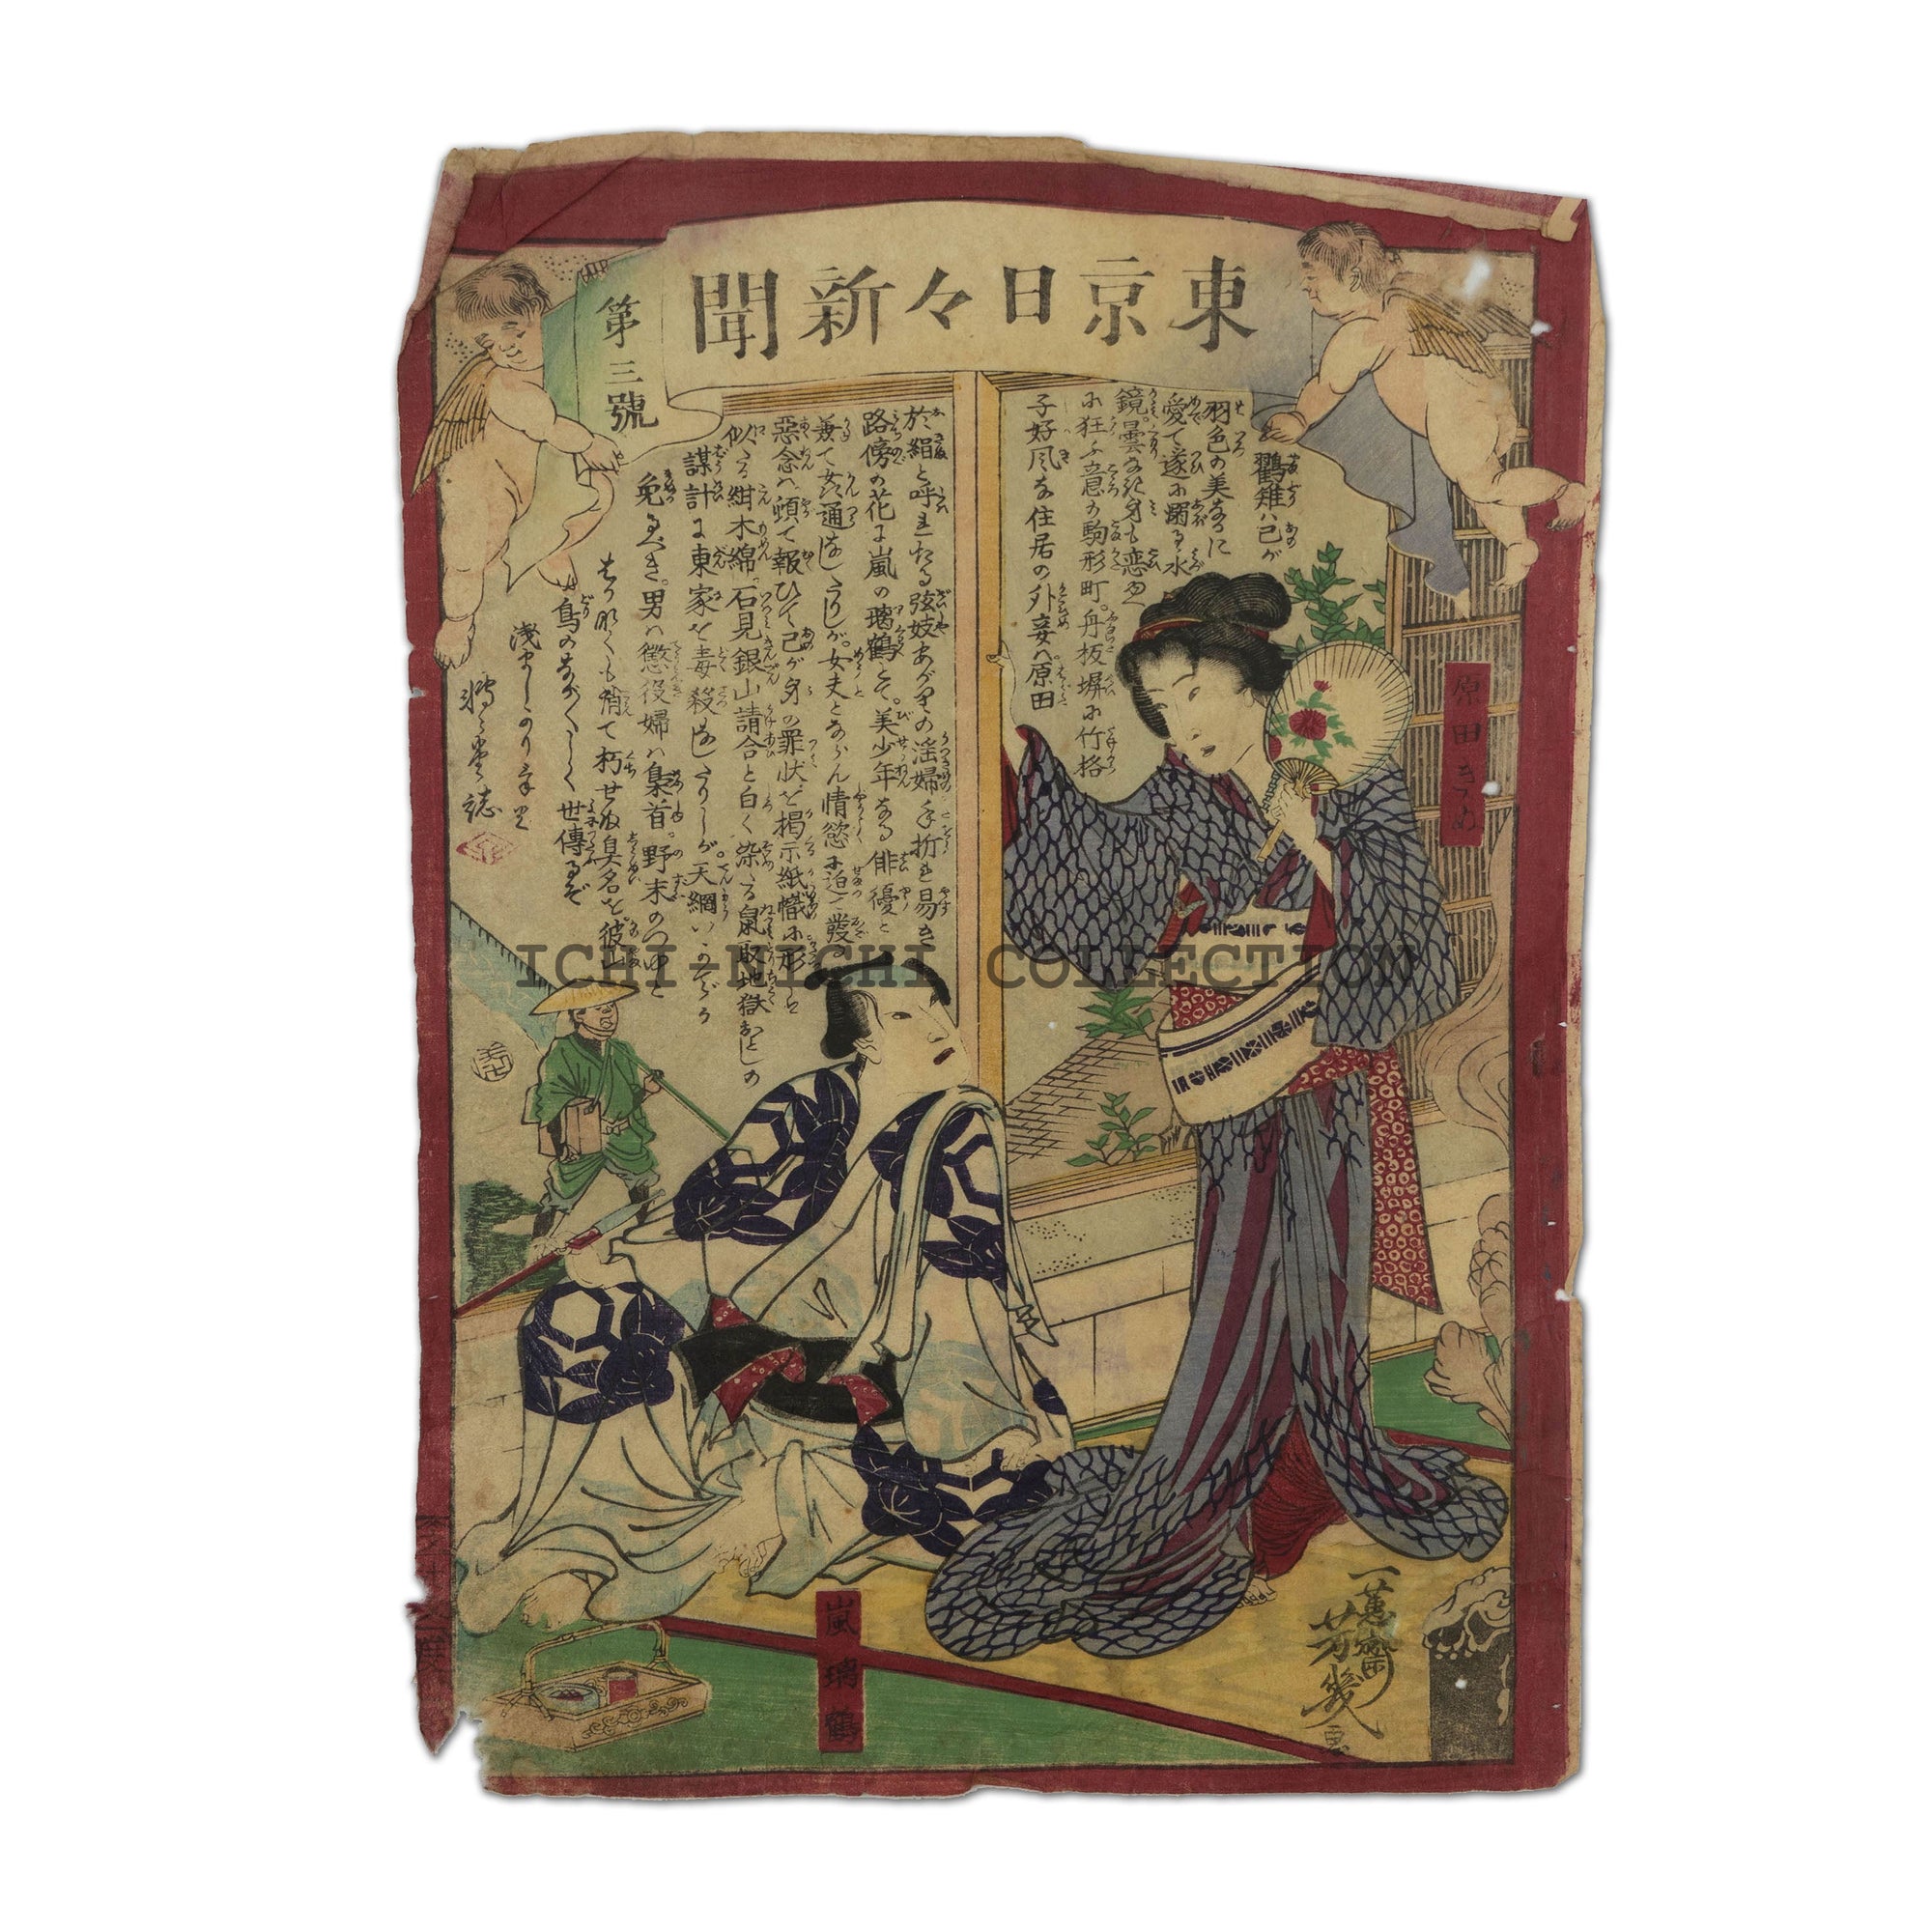 東京日々新聞
第三號
鸐雉ハ己が
羽色の美なるに
愛て遂に溺る水
鏡。曇なき身も恋ゆゑ
に狂ふ意の駒形町。丹板塀に竹格
子好風な住居の外妾ハ。原田
於絹と呼れたる弦妓あがりの淫婦手折も易き
路傍の花に嵐の璃鶴とて。美少年なる俳優と
兼て姦通なしたりしが。女夫とならん情慾に迫て發る
惡念ハ。頓て報ひて己が身の罪状を掲示紙幟に形し
似たる紺木綿。石見銀山請合と白く染たる鼠取地獄おとしの
謀計に東家を毒殺なしたりしが。天網いかでか
免るべき。男ハ懲役婦ハ梟首。野末のつゆと
はかなくも消て朽せぬ臭名を彼
鳥のながながしく世傳るぞ
淺ましかりける
轉々堂誌
原田きぬ
嵐璃鶴
一蕙齋芳幾画
ICHI-NICHI COLLECTION